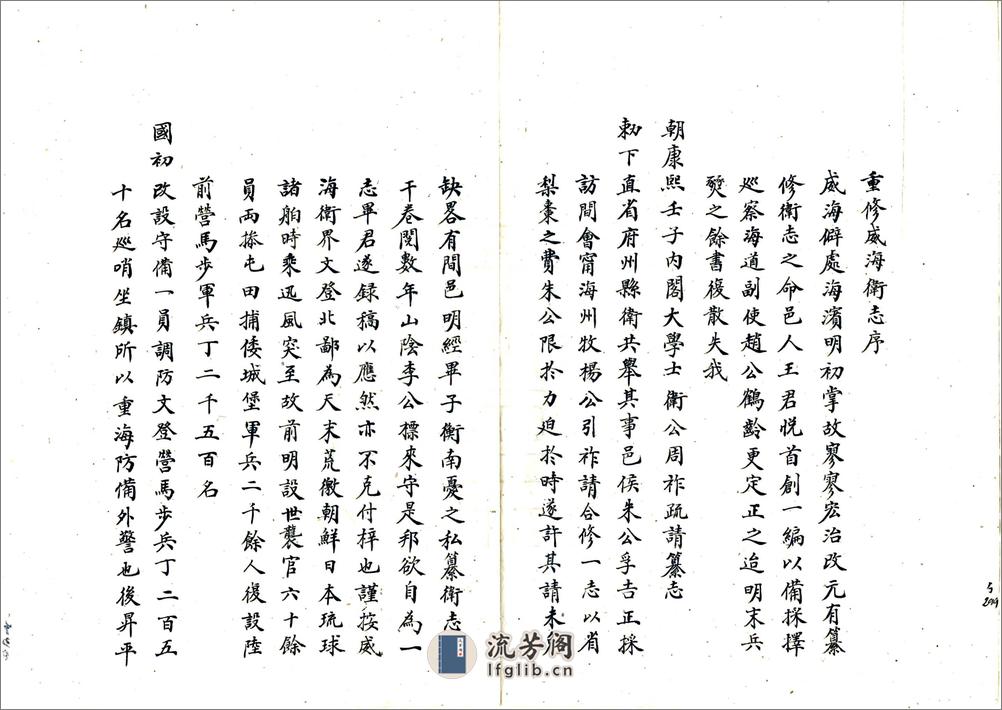 重修威海衛志序
威海僻處海濱明初掌故寥寥宏治改元有纂
修衛志之命邑人王君悅首創一編以備採擇
巡察海道副使趙公鶴齡更定正之迨明末兵
燹之餘書復散失我
朝康熙壬子內閣大學士衛公周祚疏請纂志
勅下直省府州縣衛共舉其事邑侯朱公孚吉正採
訪間會甯海州牧楊公引祚請合修一志以省
梨棗之費朱公限於力迫於時遂許其請未
缺畧有間邑明經畢子衡南憂之私纂衛志
干卷閱數年山陰李公標來守是邦欲自為一
志畢君遂録稿以應然亦不克付梓也謹按威
海衛界文登北鄙為天末荒徼朝鮮日本琉球
諸舶時乘迅風突至故前明設世襲官六十餘
員兩操屯田捕倭城堡軍兵二千餘人復設陸
前營馬步軍兵丁二千五百名
國初改設守備一員調防文登營馬步兵丁二百五
十名巡哨坐鎮所以重海防備外警也後昇平
流芳閣
lfglib.cn